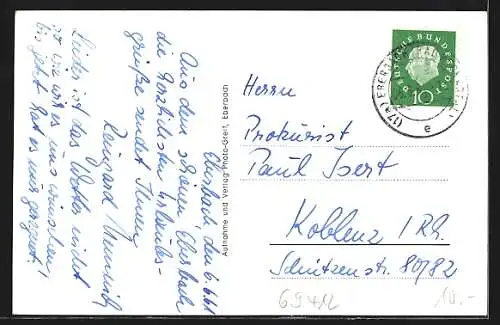 Eberbach, den 6.6.61
Aus dem schönen Eberbach
die herzlichsten Urlaubs-
grüße sendet Ihnen
Reinhard
Leider ist das Wetter nicht
so wie wir es uns wünschen,
bis jetzt hat es nur geregnet.
Aufnahme und Verlag Photo-Greif, Eberbach
DEUTSCHE BUNDESPOST
10
(17a) EBERBACH
e
Herrn
Prokurist
Paul Isert
Koblenz / Rh.
Schützenstr. 80/82
69412
10.-